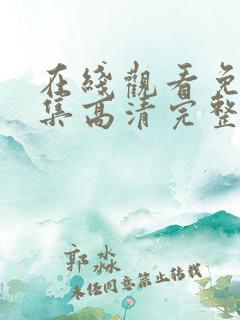 在綫觀看免
集高清完整
郭淼
未经同意禁止转载